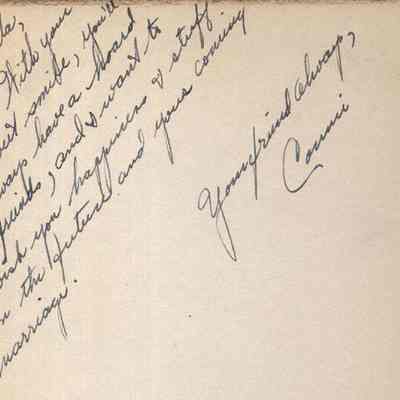 With your
smile, you'll
always have a hoard
friends, and I want to
wish you happiness & stuff
in the future and your coming
marriage.
Your friend always,
Connie